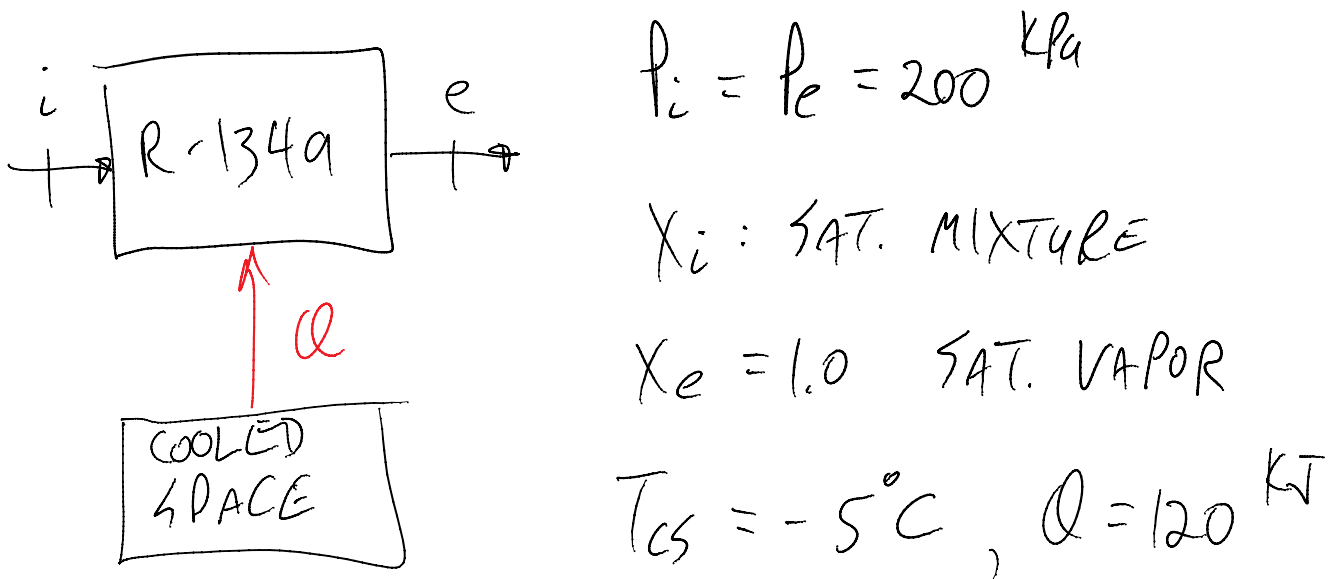 i
R-134a
e
Q
COOLED
SPACE
Pi = Pe = 200 kPa
Xi : SAT. MIXTURE
Xe = 1.0 SAT. VAPOR
Tcs = -5°C, Q = 120 KJ